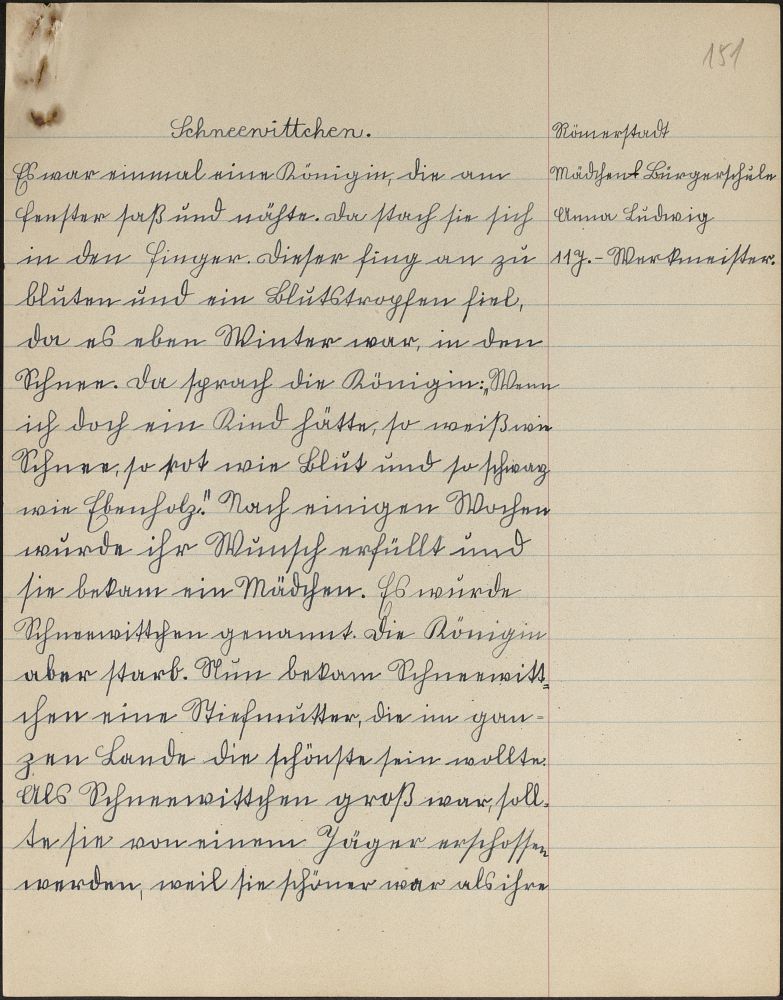 151
Schneewittchen.
Es war einmal eine Königin, die am
Fenster saß und nähte. Da stach sie sich
in den Finger. Dieser fing an zu
bluten und ein Blutstropfen fiel,
da es eben Winter war, in den
Schnee. Da sprach die Königin: „Wenn
ich doch ein Kind hätte, so weiß wie
Schnee, so rot wie Blut und so schwarz
wie Ebenholz." Nach einigen Wochen
wurde ihr Wunsch erfüllt und
sie bekam ein Mädchen. Es wurde
Schneewittchen genannt. Die Königin
aber starb. Nun bekam Schneewitt=
chen eine Stiefmutter, die im gan=
zen Lande die schönste sein wollte.
Als Schneewittchen groß war, soll=
te sie von einem Jäger erschossen
werden, weil sie schöner war als ihre
Römerstadt
Mädchen Bürgerschule
Anna Ludwig
11 J. – Werkmeister.